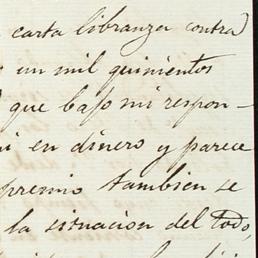 carta libranza contra
un mil quinientos
que bajo mi respon-
en dinero y parece
premio tambien se
la situacion del todo,